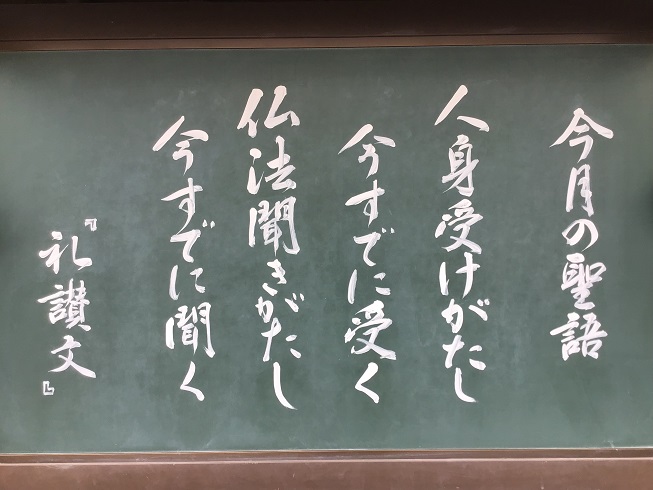 今月の聖語
人身受けがたし
今すでに受く
仏法聞きがたし
今すでに聞く
『礼讃文』